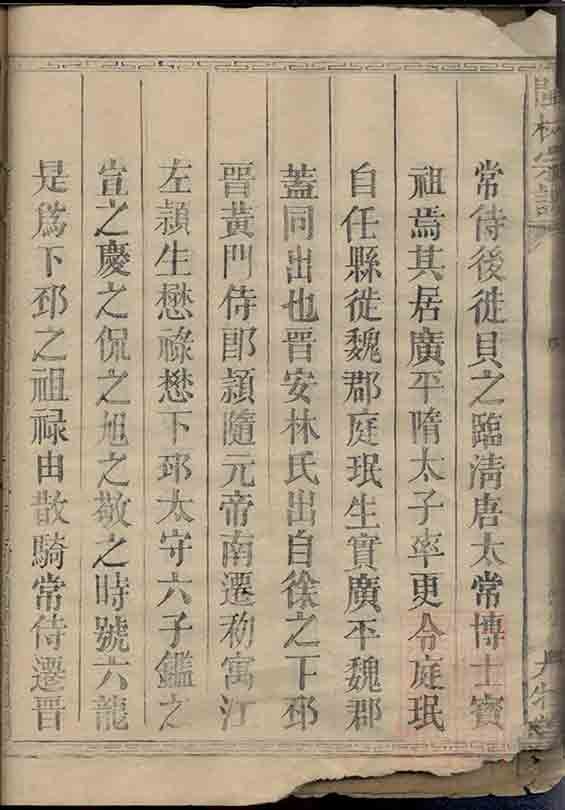 林宗譜
常侍後徙貝之臨清唐太常博士寶
祖焉其居廣平隋太子率更令庭珉
自任縣徙魏郡庭珉生實廣平魏郡
蓋同出也晉安林氏出自徐之下邳
晉黃門侍郎頴隨元帝南遷初寓江
左頴生懋祿懋下邳太守六子鑑之
宣之慶之侃之旭之敬之時號六龍
是爲下邳之祖祿由散騎常侍遷晉